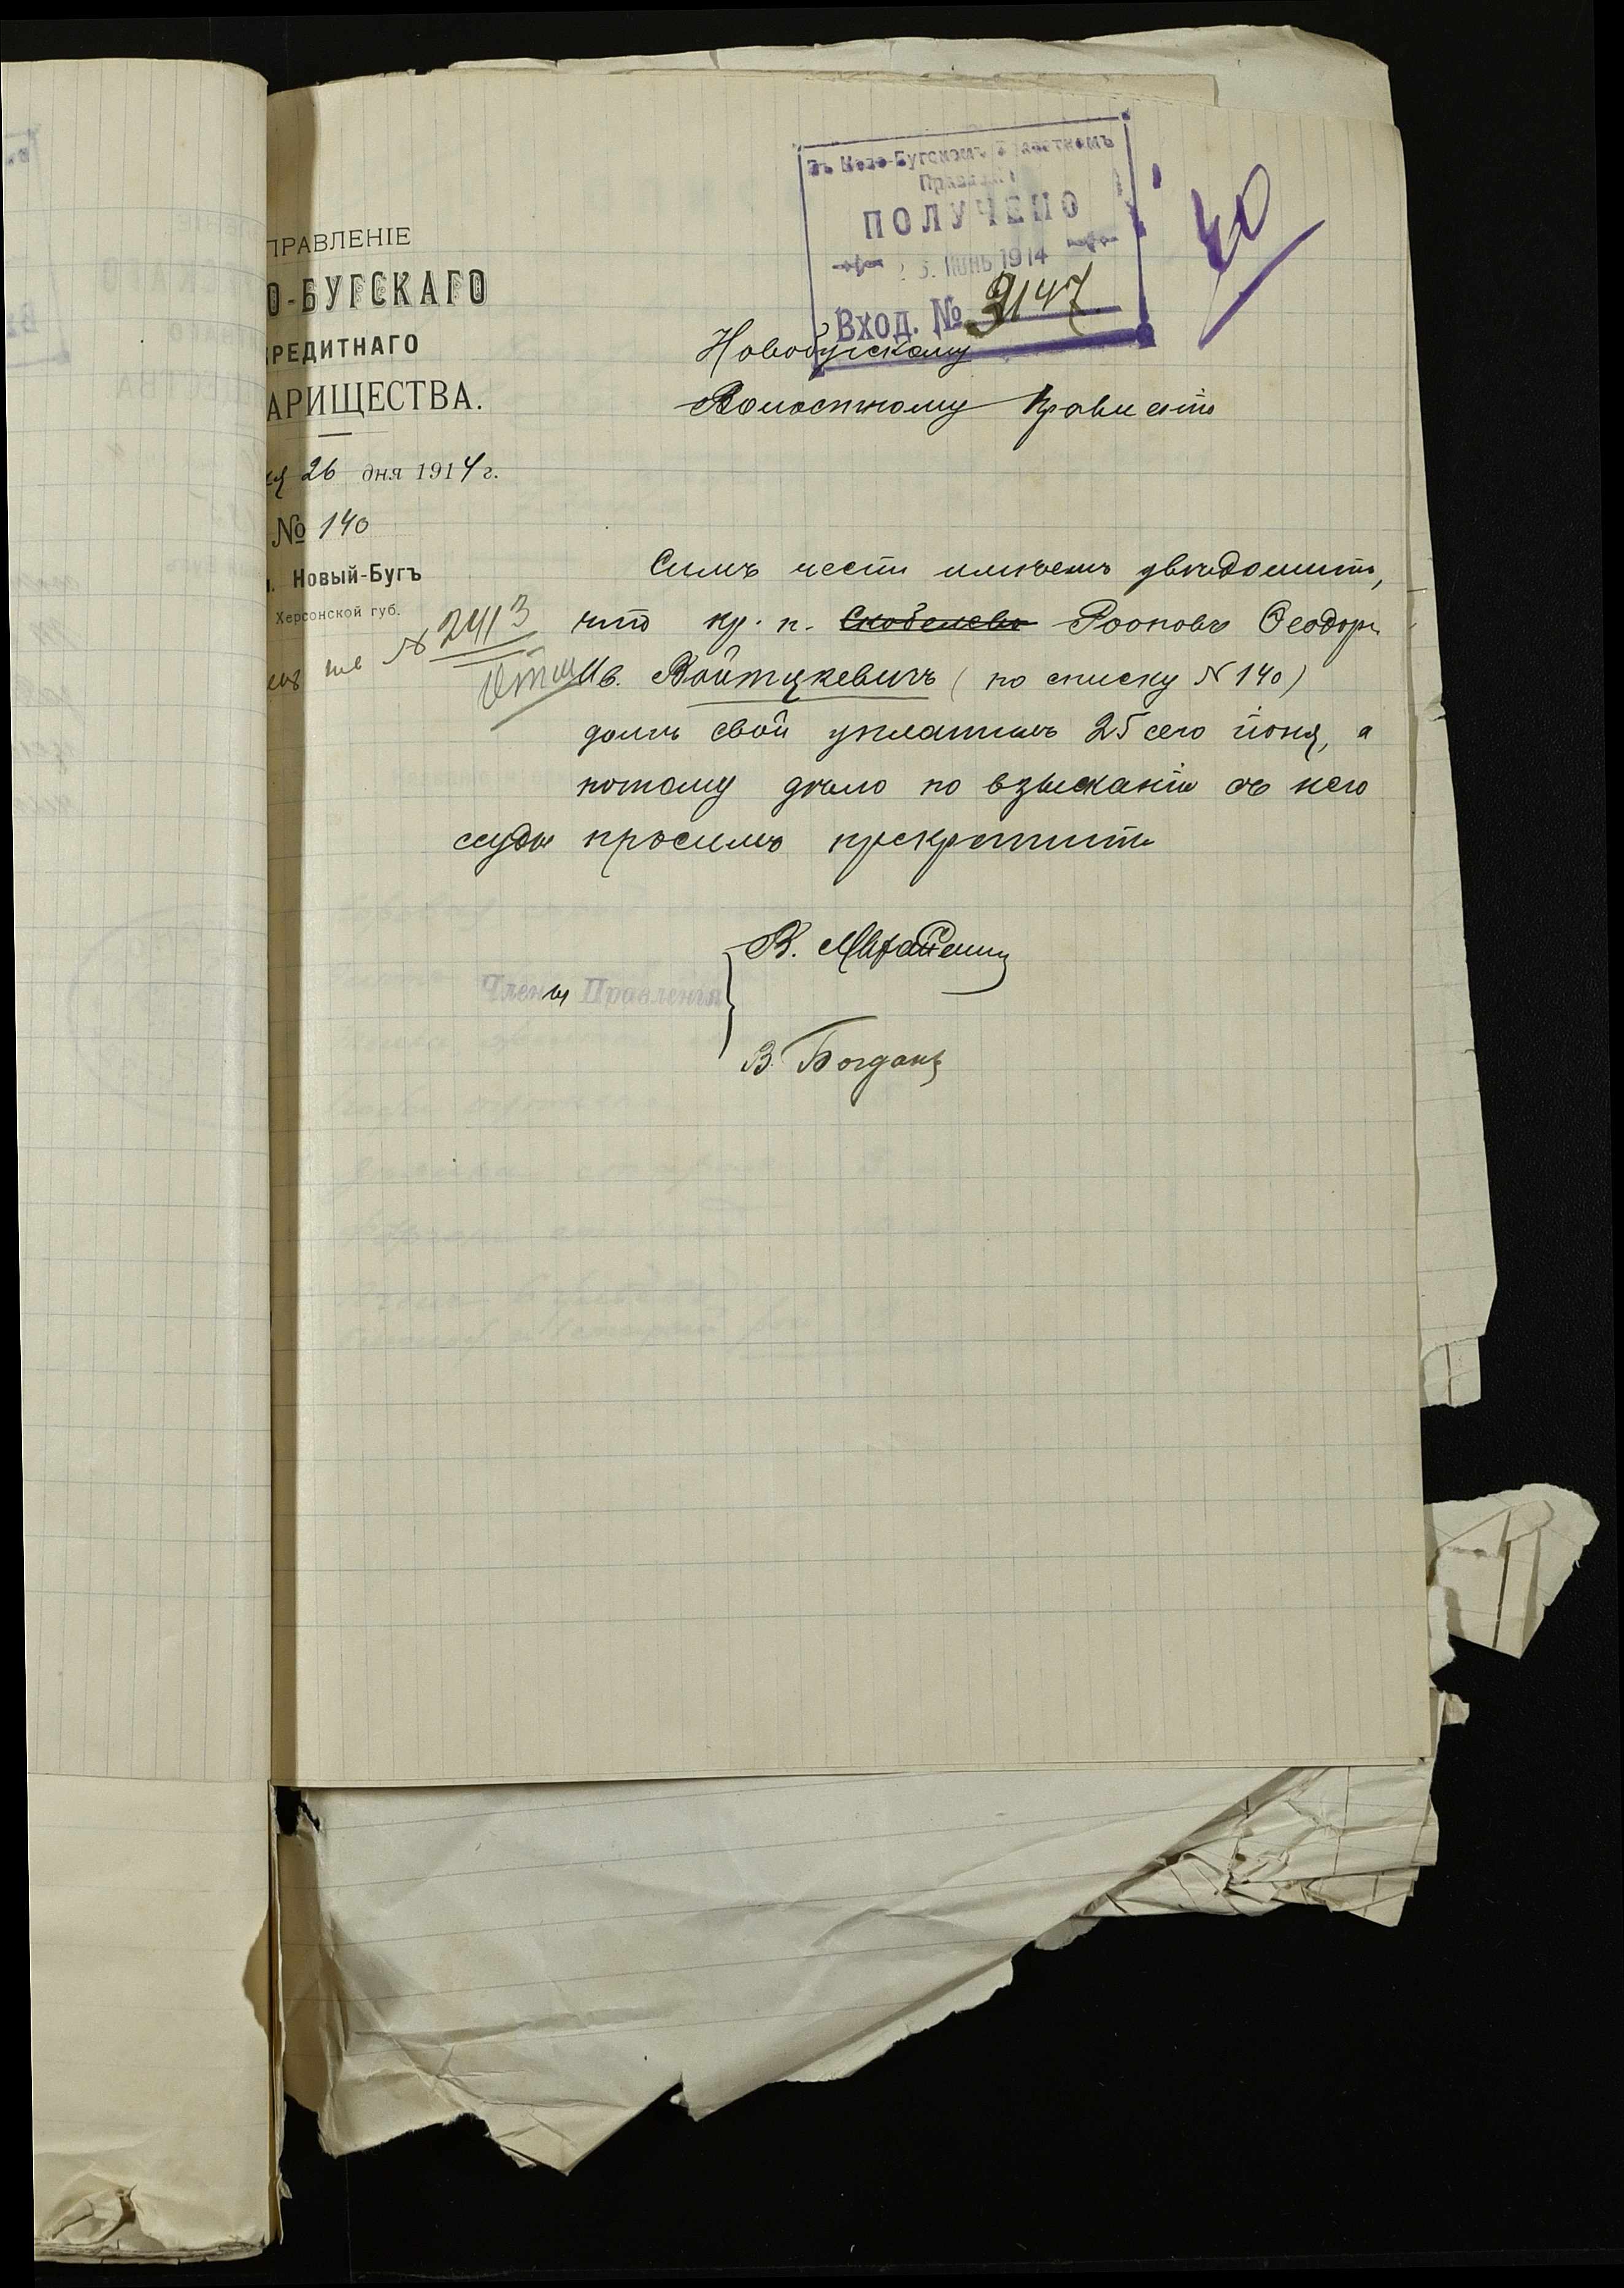 ПРАВЛЕНІЕ
О-БУГСКАГО
РЕДИТНАГО
АРИЩЕСТВА.
26 дня 1914 г.
№ 140
Новый-Бугъ
Херсонской губ.
№ 2413
Въ Ново-Бугскомъ Волостномъ
Правленіи
ПОЛУЧЕНО
ІЮНЬ 1914
Вход. № 3147
40
Новобугскому
Волостному Правленію
Симъ честь имѣемъ увѣдомить,
что кр. п. Скобелево Фодоръ
Ив. Войтукевичъ (по списку № 140)
долгъ свой уплатилъ 25 сего іюня, а
потому дѣло по взысканію съ него
ссуды просимъ прекратить
Члены Правленія
В.
В. Богданъ